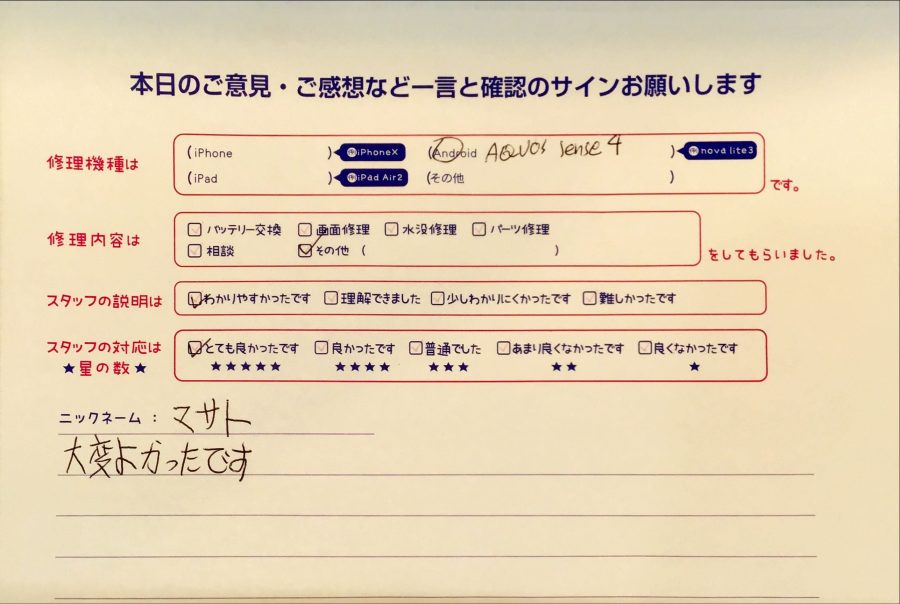 本日のご意見・ご感想など一言と確認のサインお願いします
修理機種は
(iPhone ) 例iPhoneX (Android AQUOS sense 4 ) 例nova lite3
(iPad ) 例iPad Air2 (その他 ) です。
修理内容は
バッテリー交換 画面修理 水没修理 パーツ修理
相談 その他 ( ) をしてもらいました。
スタッフの説明は わかりやすかったです 理解できました 少しわかりにくかったです 難しかったです
スタッフの対応は とても良かったです 良かったです 普通でした あまり良くなかったです 良くなかったです
★星の数★ ★★★★★ ★★★★ ★★★ ★★ ★
ニックネーム： マサト
大変よかったです